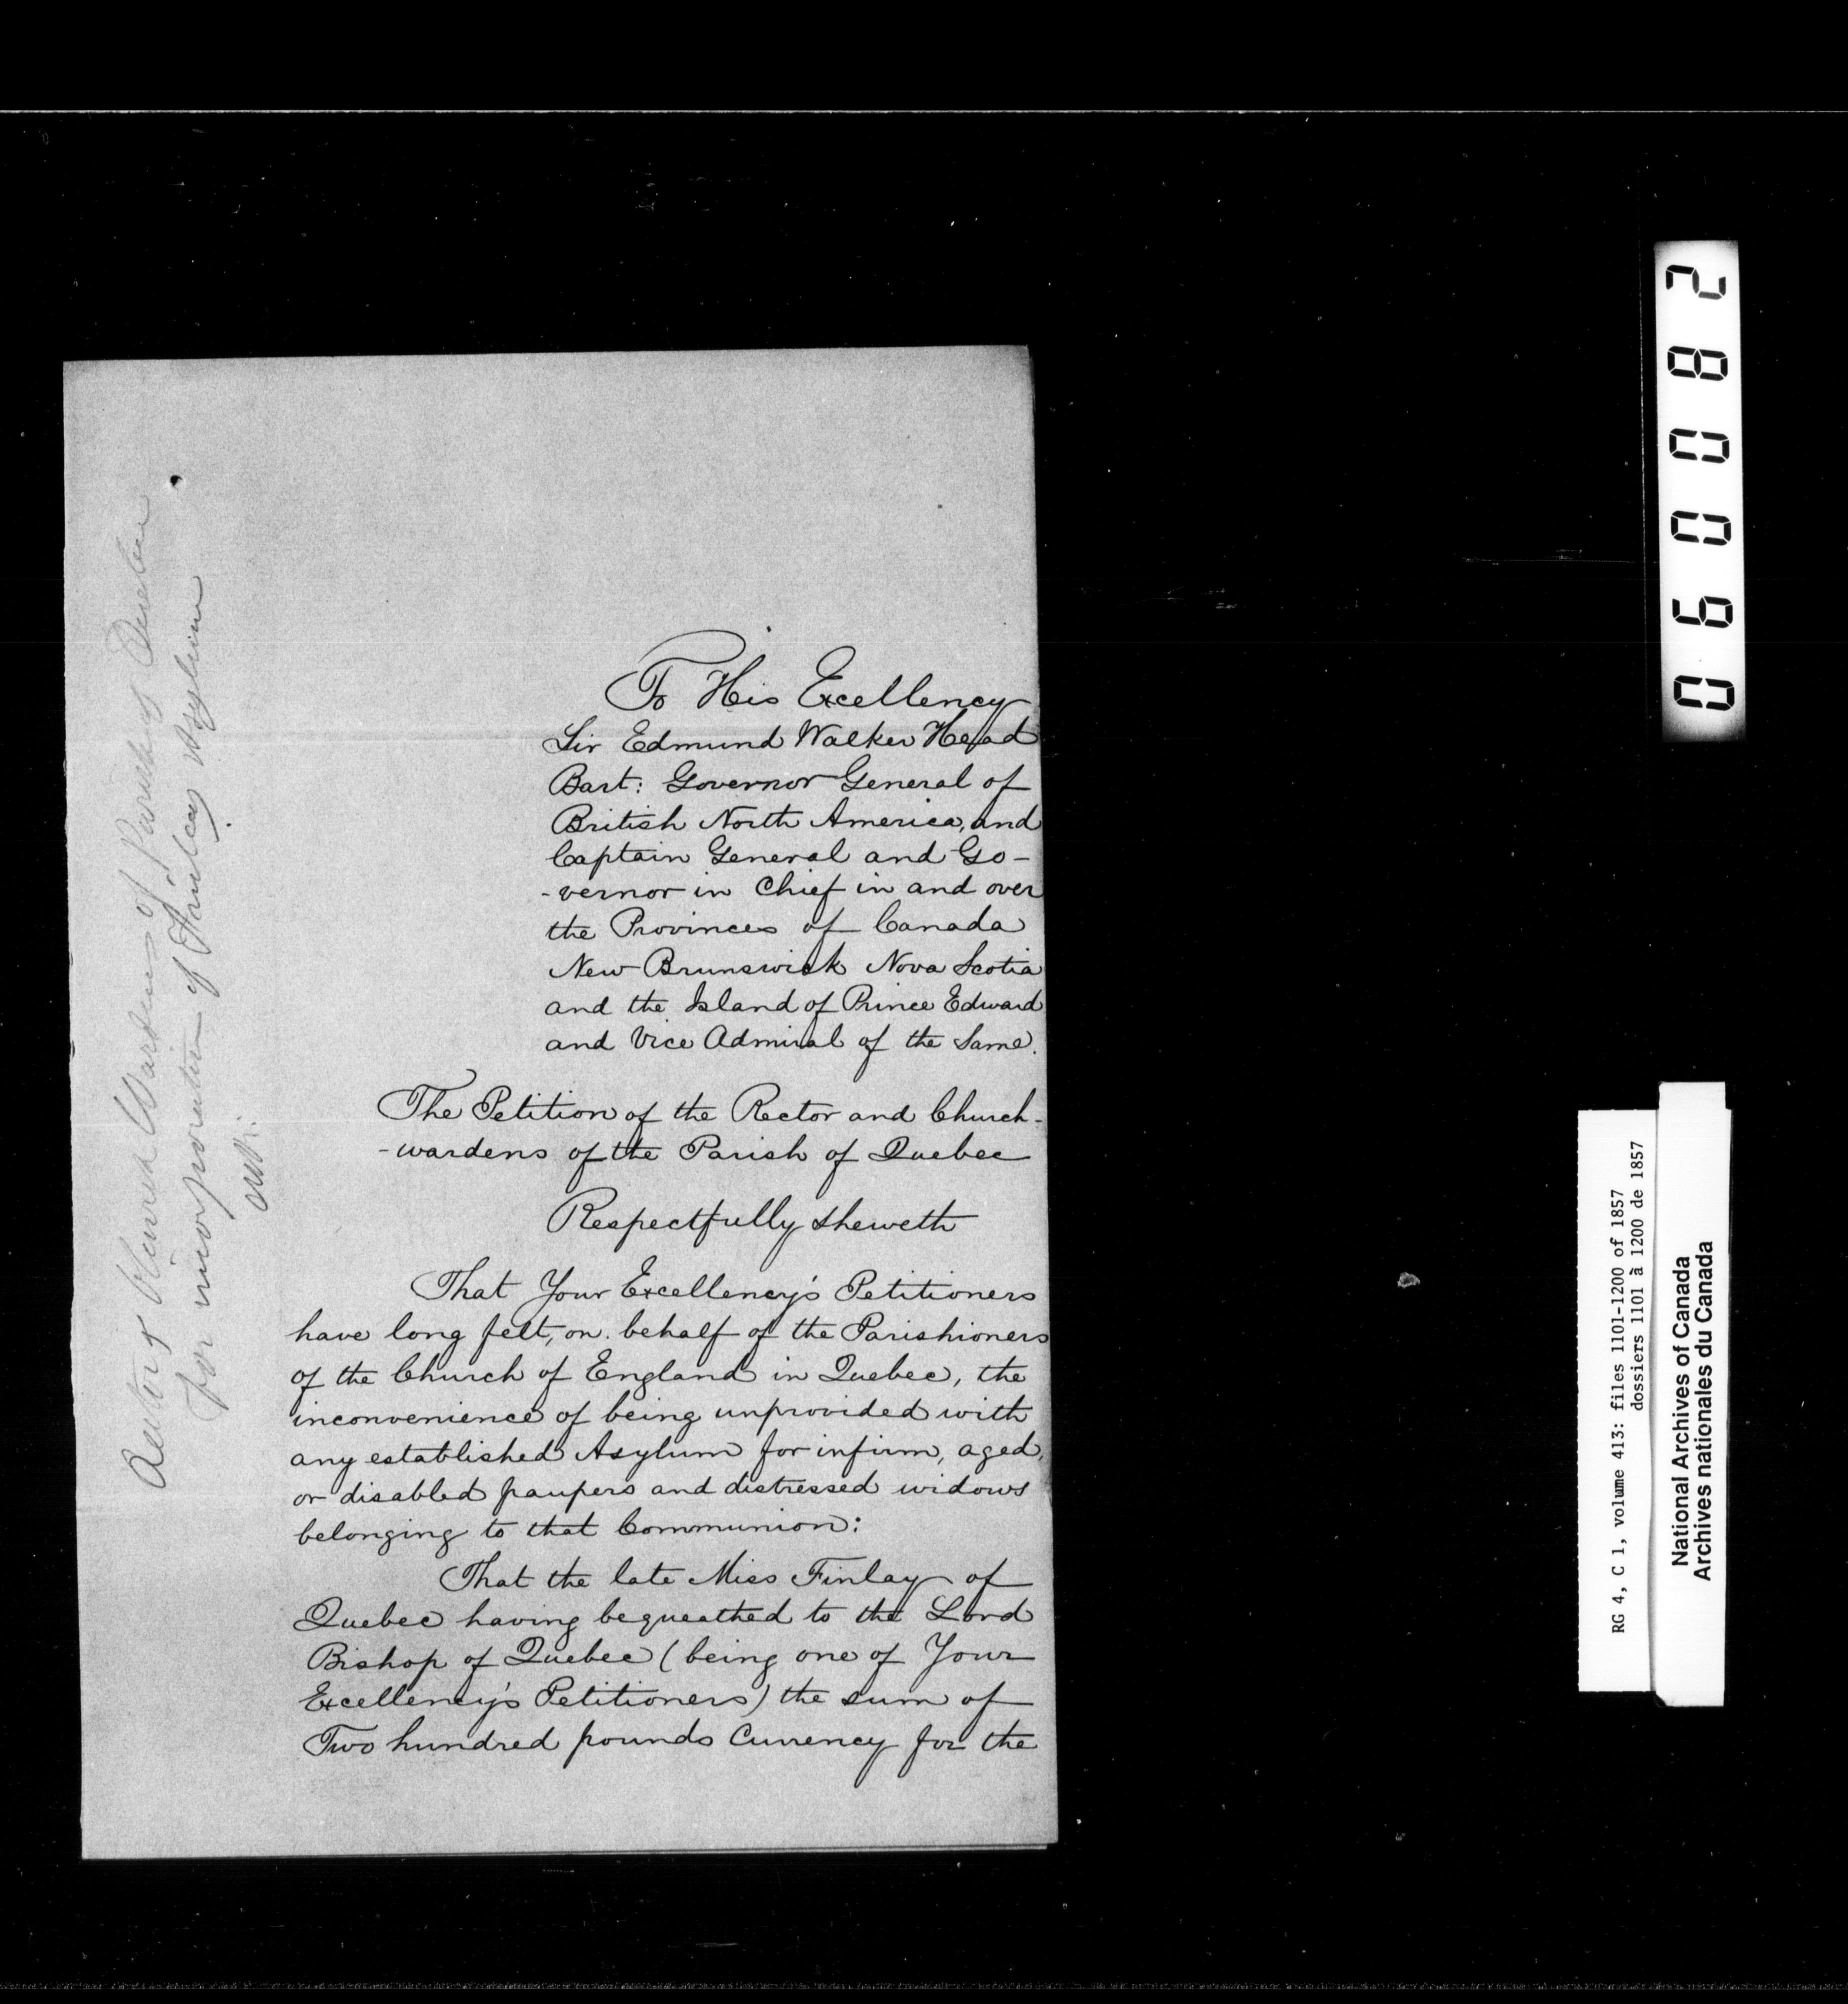 To His Excellency
Sir Edmund Walker Head
Bart: Governor General of
British North America, and
Captain General and Go-
-vernor in Chief in and over
the Provinces of Canada
New Brunswick Nova Scotia
and the Island of Prince Edward
and Vice Admiral of the Same.
The Petition of the Rector and Church-
-wardens of the Parish of Quebec
Respectfully sheweth
That Your Excellency's Petitioners
have long felt, on behalf of the Parishioners
of the Church of England in Quebec, the
inconvenience of being unprovided with
any established Asylum for infirm, aged,
or disabled paupers and distressed widows
belonging to that Communion:
That the late Miss Finlay of
Quebec having bequeathed to the Lord
Bishop of Quebec (being one of Your
Excellency's Petitioners) the sum of
Two hundred pounds Currency for the
Rector & Church Wardens of Parish of Quebec
for incorporation of Finlay Asylum
060082
RG 4, C 1, volume 413: files 1101-1200 of 1857
dossiers 1101 à 1200 de 1857
National Archives of Canada
Archives nationales du Canada